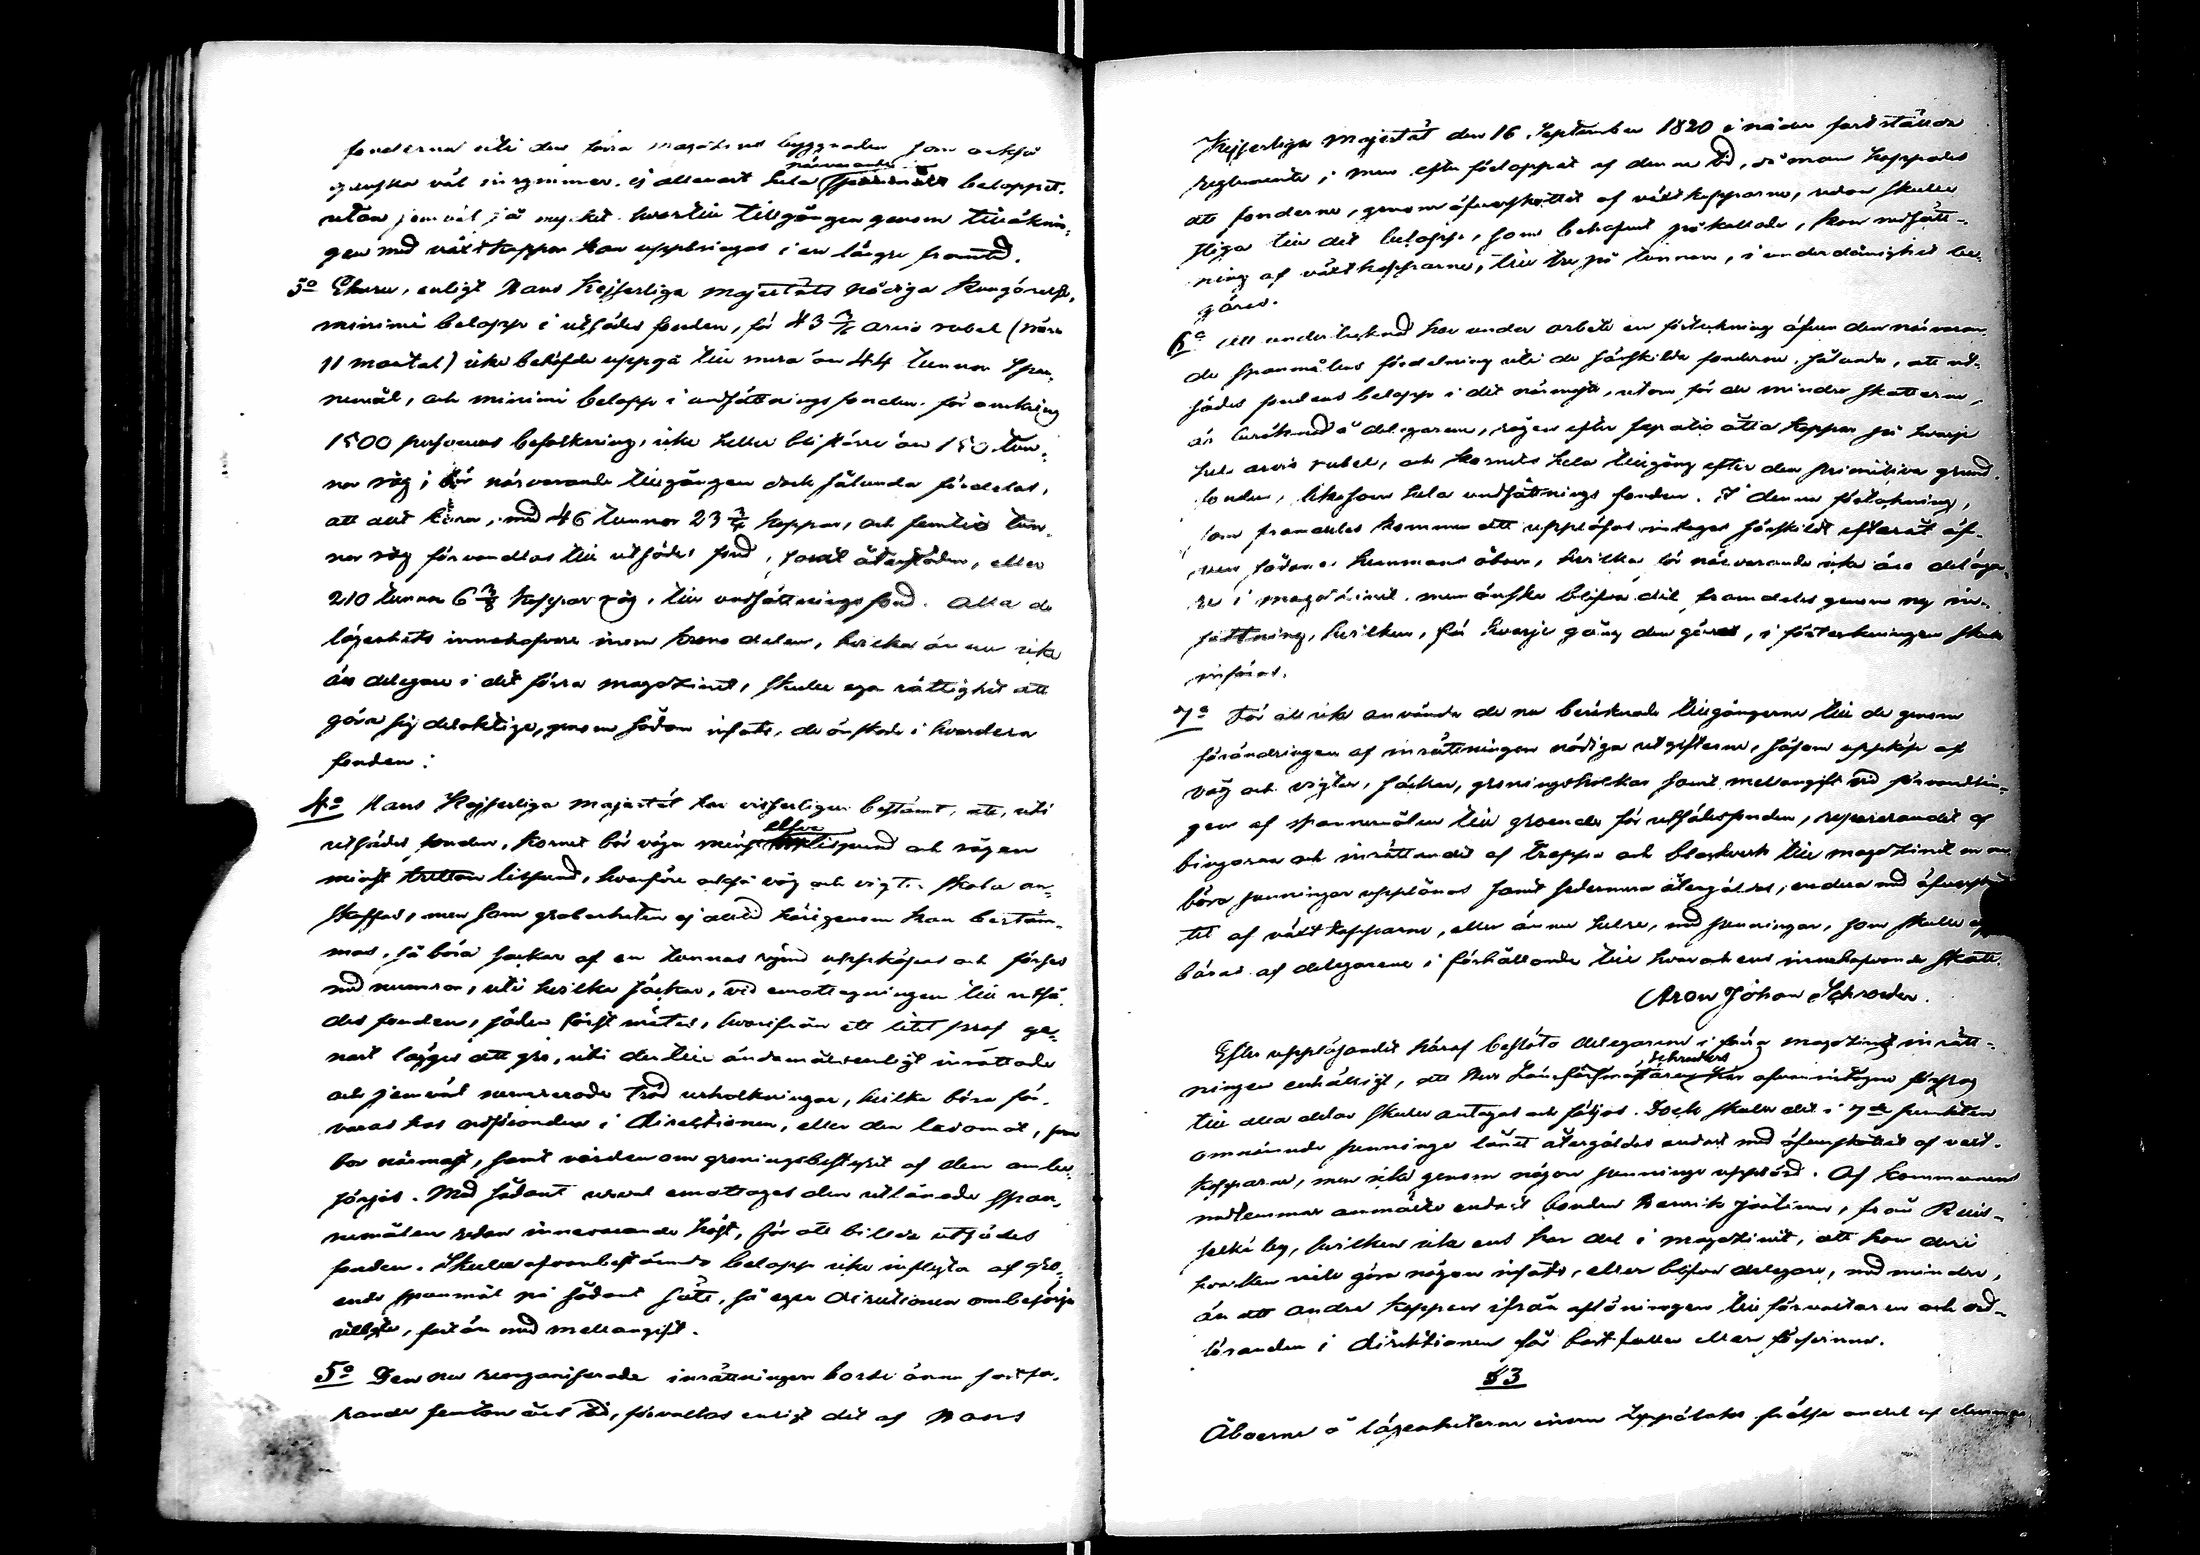 fonderna uti den förra magazins byggnaden som också
ganska väl inrymmer, ej allenast hela närvarande beloppet,
utan jemväl så mycket hvartill tillgången genom tillöknin-
gen med växtkappar kan uppbringas i en längre framtid.
3o Ehuru, enligt Hans Kejserliga Majestäts Nådiga Kungörelse,
minimi belopp i utsädes fonden, för 43 arvio rubel (nära
11 mantal) icke behöfde uppgå till mera än 44 tunnor Span-
nemål, och minimi belopp i undsättnings fonden för omkring
1500 personers befolkning, icke heller blifva större än 150 tun-
nor råg; bör närvarande tillgången dock sålunda fördelas,
att allt korn, med 46 tunnor 23 3/4 kappar, och femtio tun-
nor råg förvandlas till utsädes fond, samt återstoden, eller
210 tunnor 6 3/8 kappar råg, till undsättnings fond. Alla de
lägenhets innehafvare inom krono delen, hvilka ännu icke
äro delegare i det förra magazinet, skulle ega rättighet att
göra sig delaktige, genom sådan insats, de önskade i hvardera
fonden:
4o Hans Kejserliga Majestät har visserligen bestämt, att, uti
utsädes fonden, kornet bör väga minst elfva lispund och rågen
minst tretton lispund, hvarföre också våg och vigter skola an-
skaffas, men som grobarheten ej alltid härigenom kan bestäm-
mas, så böra säckar af en tunnas rymd uppköpas och förses
med numror, uti hvilka säckar, vid emottagningen till utsä-
des fonden, säden först mätes, hvarifrån ett litet prof ge-
nast lägges att gro, uti dertill ändamålsenligt inrättade
och jemväl numrerade träd urholkningar, hvilka böra för-
varas hos ordföranden i Direktionen, eller den ledamot, som
bor närmast, samt vården om groningsbestyret af den ombe-
sörjes. Med sådant urval emottages den utlånade Span-
nemålen redan innevarande höst, för att bilda utsädes
fonden. Skulle ofvanbestämda belopp icke inflyta af gro-
ende spanmål på sådant sätt, så eger Direktionen ombesörja
utbyte, fastän med mellangift.
5o Den nu reorganiserade inrättningen borde ännu fortfa-
rande femton års tid, förvaltas enligt det af Hans
Kejserliga Majestät den 16 September 1820 i nåder fastställda
Reglemente; men efter förloppet af denna tid, då man hoppades
att fonderne, genom öfverskottet af växtkapparne, redan skulle
stiga till det belopp, som behofvet påkallade, kan nedsätt-
ning af växtkapparne, till tre på tunnan, i underdånighet be-
gäras.
6o All undertecknad har under arbete en förteckning öfver den närvaran-
de spanmålens fördelning uti de särskilda fonderne, sålunda, att ut-
sädes fondens belopp i det närmaste, utom för de mindre skatterne,
är beräknad å delegarene, rågen efter sexatio åtta kappar på hvarje
hel arvio rubel, och kornets hela tillgång efter den primitiva grund-
fonden, likasom hela undsättnings fonden. I denna förteckning,
som framdeles kommer att uppläsas, intages särskildt efteråt äf-
ven sådane hemmans åboer, hvilka för närvarande icke äro deläga-
re i magazinet, men önska blifva det framdeles genom ny in-
sättning, hvilken, för hvarje gång den göres, i förteckningen skall
införas.
7o För att icke använda de nu beräknade tillgångerne till de genom
förändringen af inrättningen nödiga utgifterne, såsom uppköp af
våg och vigter, säckar, groningsholkar samt mellangift vid förvandlin-
gen af spannemålen till groende för utsädesfonden, repererandet af
bingarna och inrättandet af trappa och blockverk till magazinet
böra penningar upplånas samt sedermera återgäldas, endera med öfverskot-
tet af växtkapparne, eller ännu hellre, med penningar, som skulle
bäras af delegarene i förhållande till hvar och ens innehafvande skatt.
Aron Johan Schroeder.
Efter uppläsandet häraf beslöto delegarene i förra magazins inrätt-
ningen enhälligt, att Herr Länsförsmästaren Schroeders ofvanintagne förslag
till alla delar skulle antagas och följas. Dock skulle det i 7de punkten
omnämnde penninge lånet återgäldas endast med öfverskottet af växt-
kapparne, men icke genom någon penninge uppbörd. Af kommunens
medlemmar anmälte endast bonden Henrik, från Reis-
selkä by, hvilken icke ens har del i magazinet, att han deri
hvarken vill göra någon insats, eller blifva delegare, med mindre,
än att andra kappen ifrån aflöningen till förvaltaren och ord-
föranden i Direktionen får bortfalla eller försvinna.
§ 3
Åboerne å lägenheterne inom frälse andel af